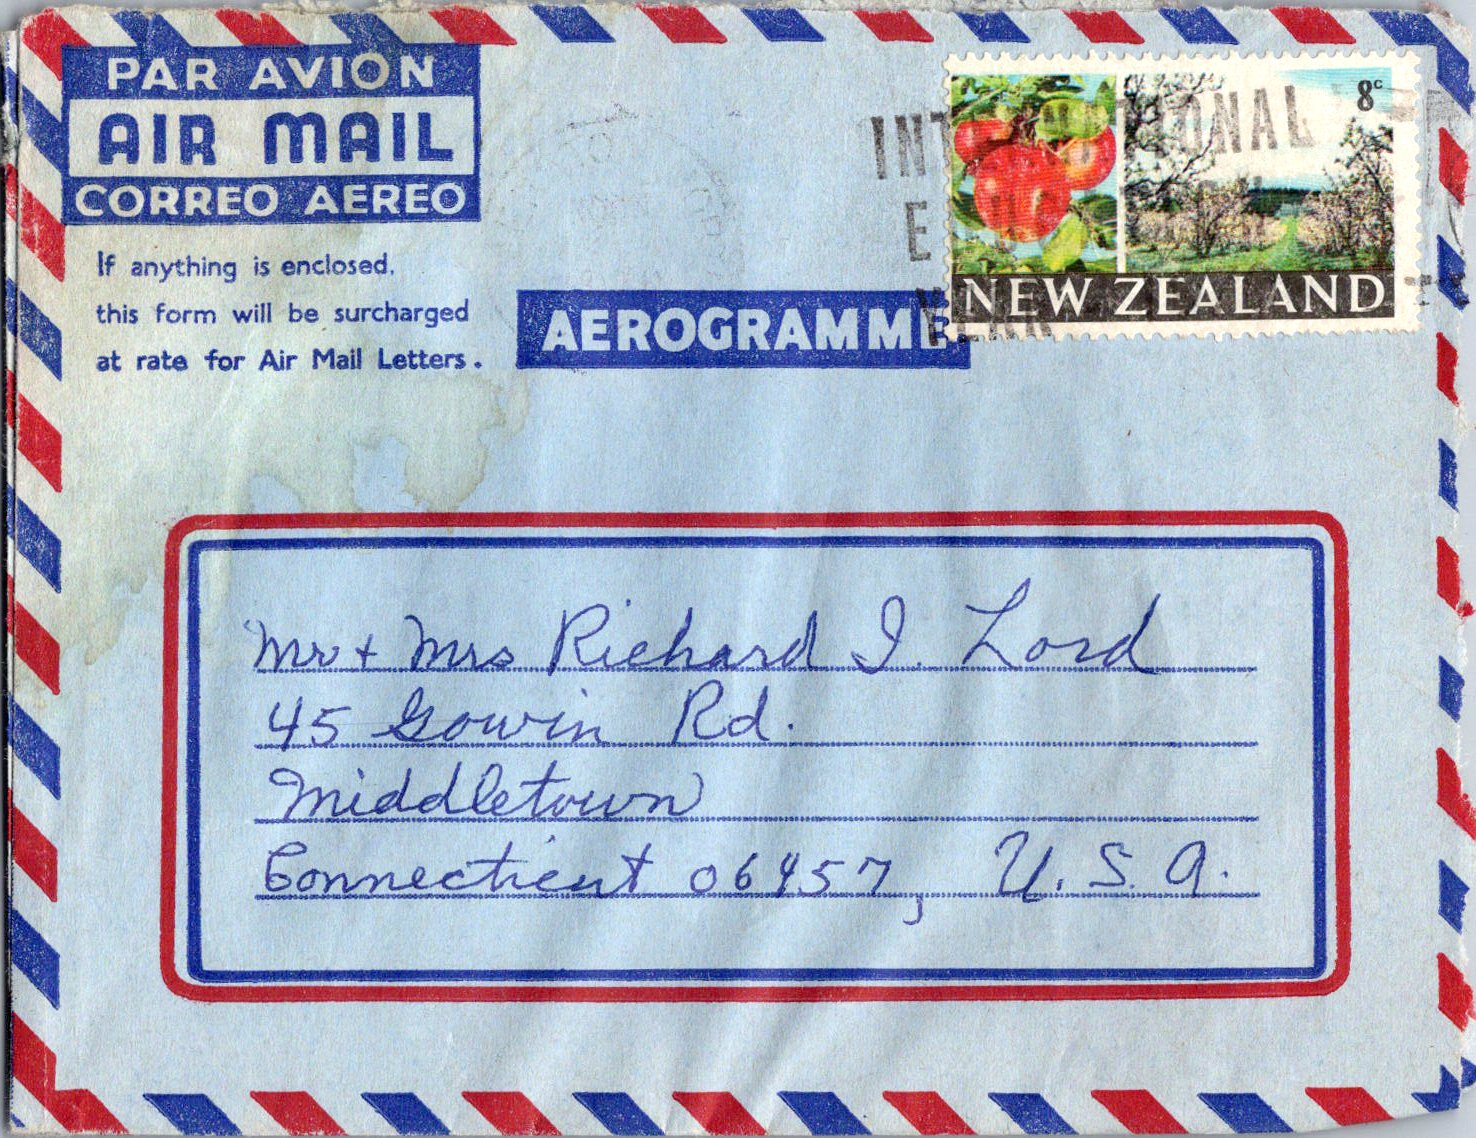 PAR AVION
AIR MAIL
CORREO AEREO
If anything is enclosed,
this form will be surcharged
at rate for Air Mail Letters.
AEROGRAMME
8c
NEW ZEALAND
Mr + Mrs Richard I. Lord
45 Gowin Rd.
Middletown
Connecticut 06457, U.S.A.